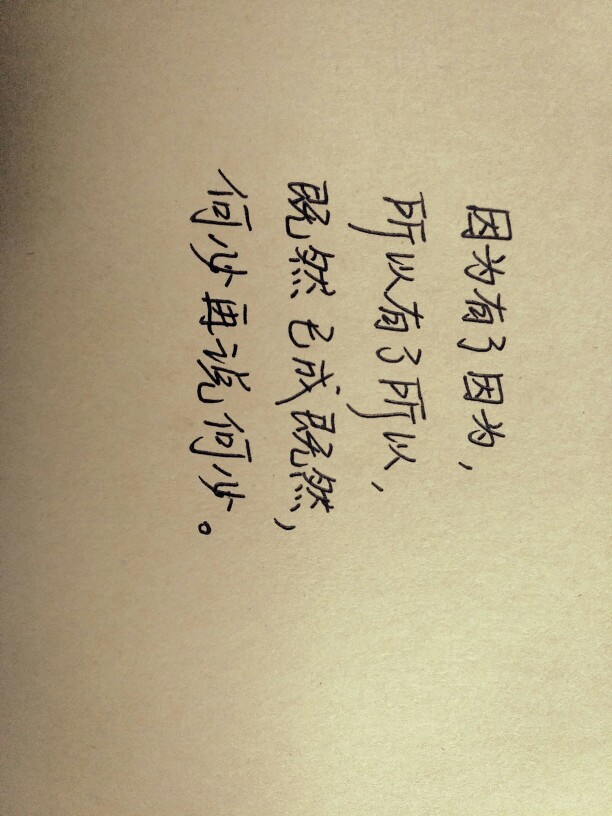 因为有了因为，
所以有了所以，
既然已成既然，
何必再说何必。